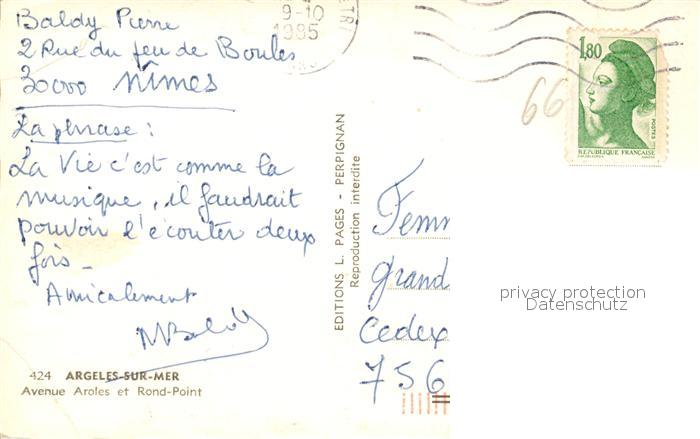 Baldy Pierre
2 Rue du jeu de Boules
30000 Nîmes
La phrase :
La Vie c'est comme la
musique, il faudrait
pouvoir l'écouter deux
fois_
Amicalement
424 ARGELES-SUR-MER
Avenue Aroles et Rond-Point
EDITIONS L. PAGES - PERPIGNAN
Reproduction interdite
9-10
1985
1,80
POSTES
REPUBLIQUE FRANÇAISE
66
Femm
grand
Cedex
756
privacy protection
Datenschutz